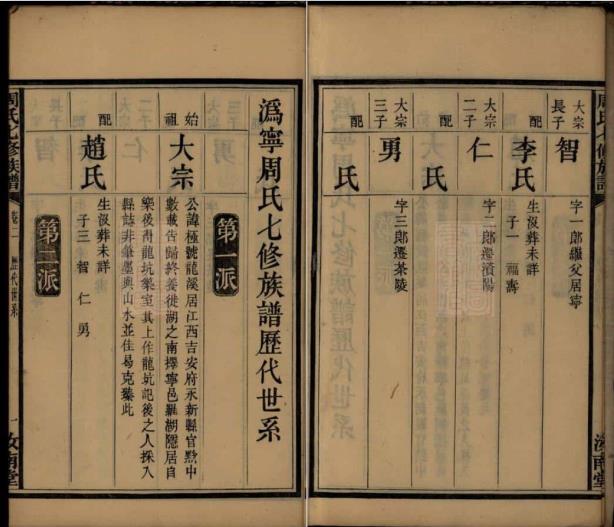 潙寧周氏七修族譜歷代世系
第一派
始祖
大宗
公諱極號龍溪居江西吉安府永新縣官黔中
數載告歸終養徙湖之南擇寧邑羅湖隱居自
樂後問龍坑築室其上作龍坑記後之人採入
縣誌非筆墨與山水並佳曷克臻此
配
趙氏
生沒葬未詳
子三 智 仁 勇
第二派
周氏七修族譜 卷二 歷代世系 一 汝南堂
大宗長子
智
字一郎繼父居寧
配
李氏
生沒葬未詳
子一 福壽
大宗二子
仁
字二郎遷陽
配
氏
大宗三子
勇
字三郎遷茶陵
配
氏